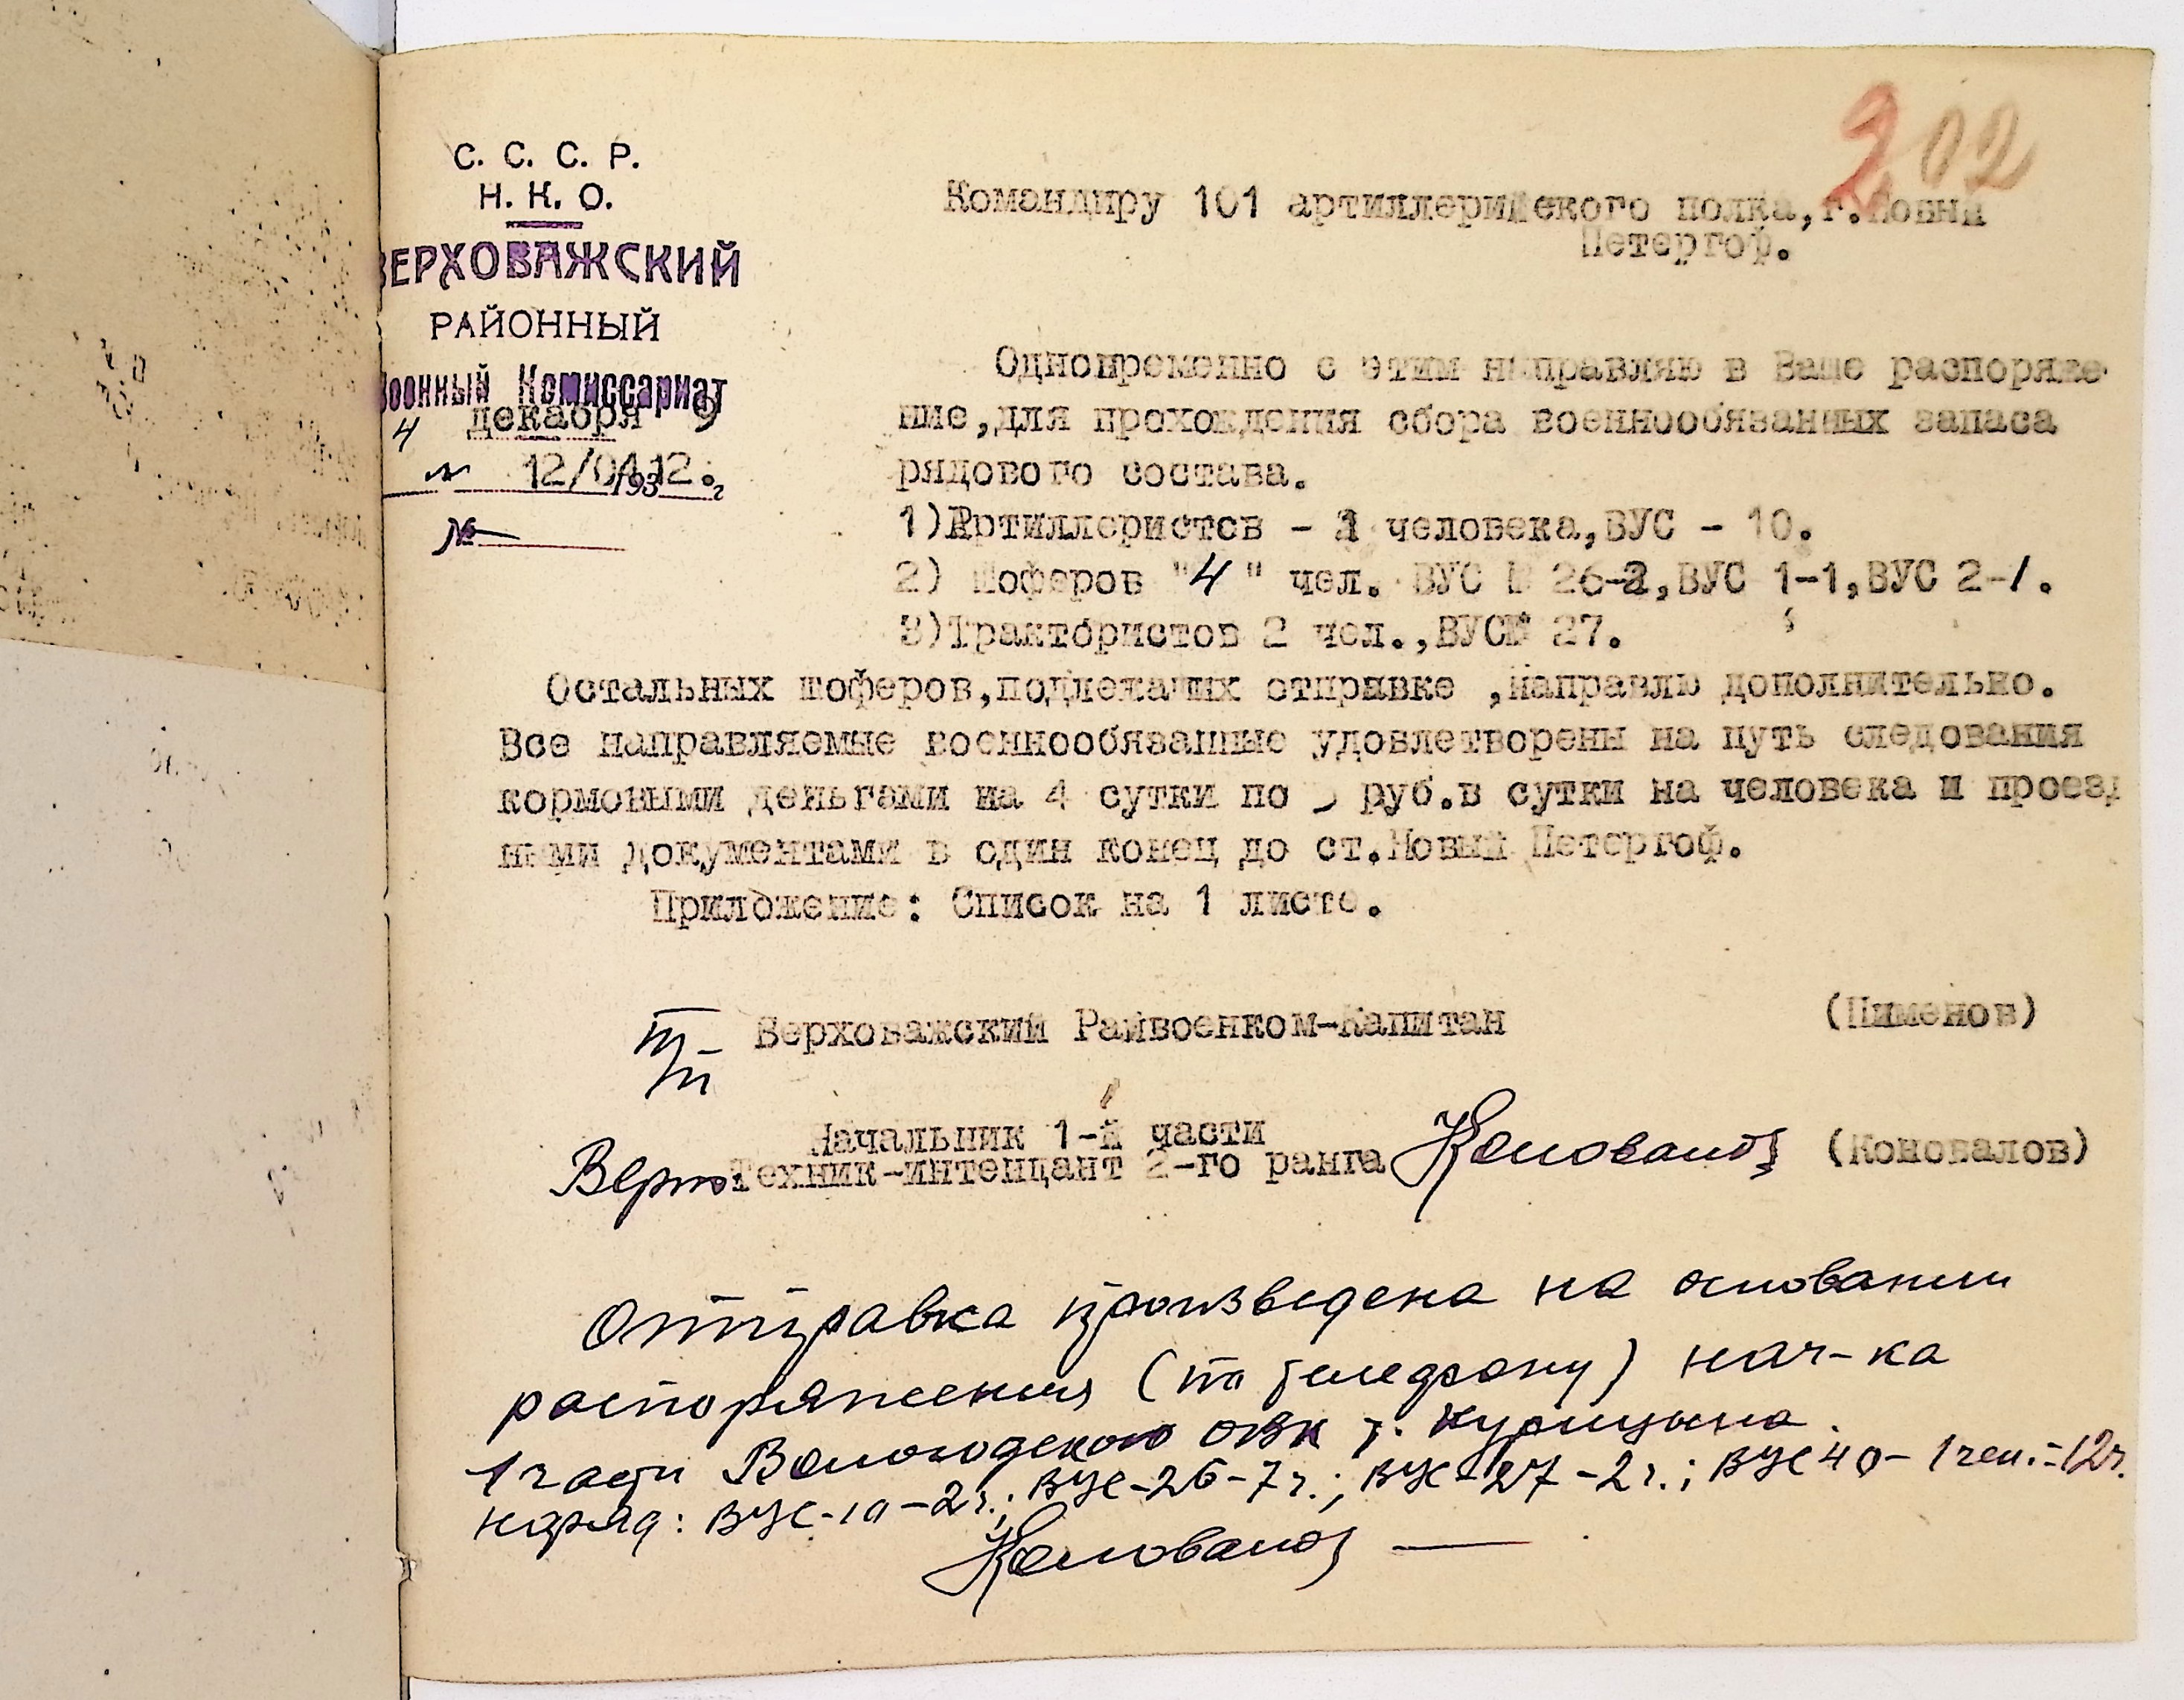 202
С. С. С. Р.
Н. К. О.
ВЕРХОВАЖСКИЙ
РАЙОННЫЙ
Военный Комиссариат
4 декабря 9
12/0412.
193 г
№
Командиру 101 артиллерийского полка, г. Новый
Петергоф.
Одновременно с этим направляю в Ваше распоряже-
ние,для прохождения сбора военнообязанных запаса
рядового состава.
1)Артиллеристов - человека,ВУС - 10.
2) Шоферов "4" чел. ВУС № 26-2,ВУС 1-1,ВУС 2-1.
3)Трактористов 2 чел.,ВУС№ 27.
Остальных шоферов,подлежащих отправке ,направлю дополнительно.
Все направляемые военнообязанные удовлетворены на путь следования
кормовыми деньгами на 4 сутки по руб.в сутки на человека и проезд
ными документами в один конец до ст.Новый Петергоф.
Приложение: Список на 1 листе.
Верховажский Райвоенком-Капитан (Пименов)
Начальник 1-й части
Верно: Техник-интендант 2-го ранга Коновалов (Коновалов)
Отправка произведена на основании
распоряжения (по телефону) нач-ка
1 части Вологодского ОВК т. Курицына.
наряд: ВУС-10-2ч.; ВУС-26-7ч.; ВУС-27-2ч.; ВУС 40-1чел.=12ч.
Коновалов